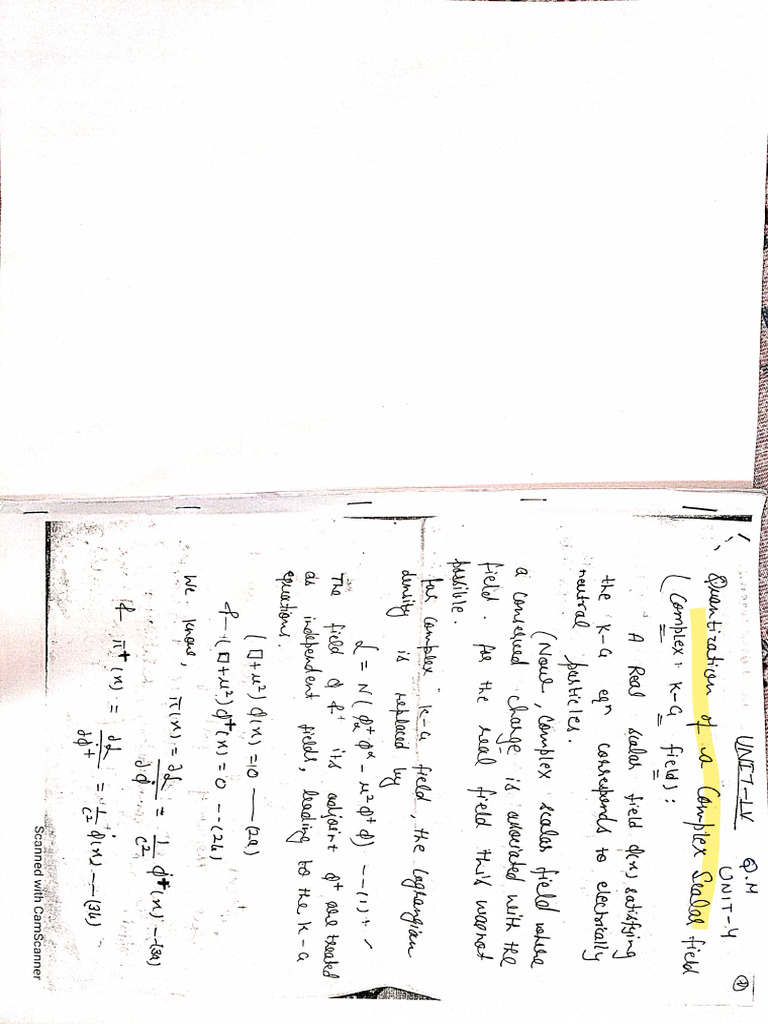 Q.M
UNIT-IV UNIT-4
Quantization of a Complex Scalar field
(Complex K-G field):
A Real scalar field φ(x) satisfying
the K-G eqⁿ corresponds to electrically
neutral particles.
(Now, Complex scalar field where
a conserved charge is associated with the
field. for the real field this was not
possible.
for complex K-G field, the Lagrangian
density is replaced by
ℒ = N(φ†,α φ,α - μ² φ† φ) ---(1)
The field φ & its adjoint φ† are treated
as independent fields, leading to the K-G
equations.
(□+μ²) φ(x) = 0 —(2a)
& —(□+μ²) φ†(x) = 0 --(2b)
We know, π(x) = ∂ℒ/∂φ̇ = 1/c² φ̇†(x) —(3a)
& π†(x) = ∂ℒ/∂φ̇† = 1/c² φ̇(x) ---(3b)
Scanned with CamScanner